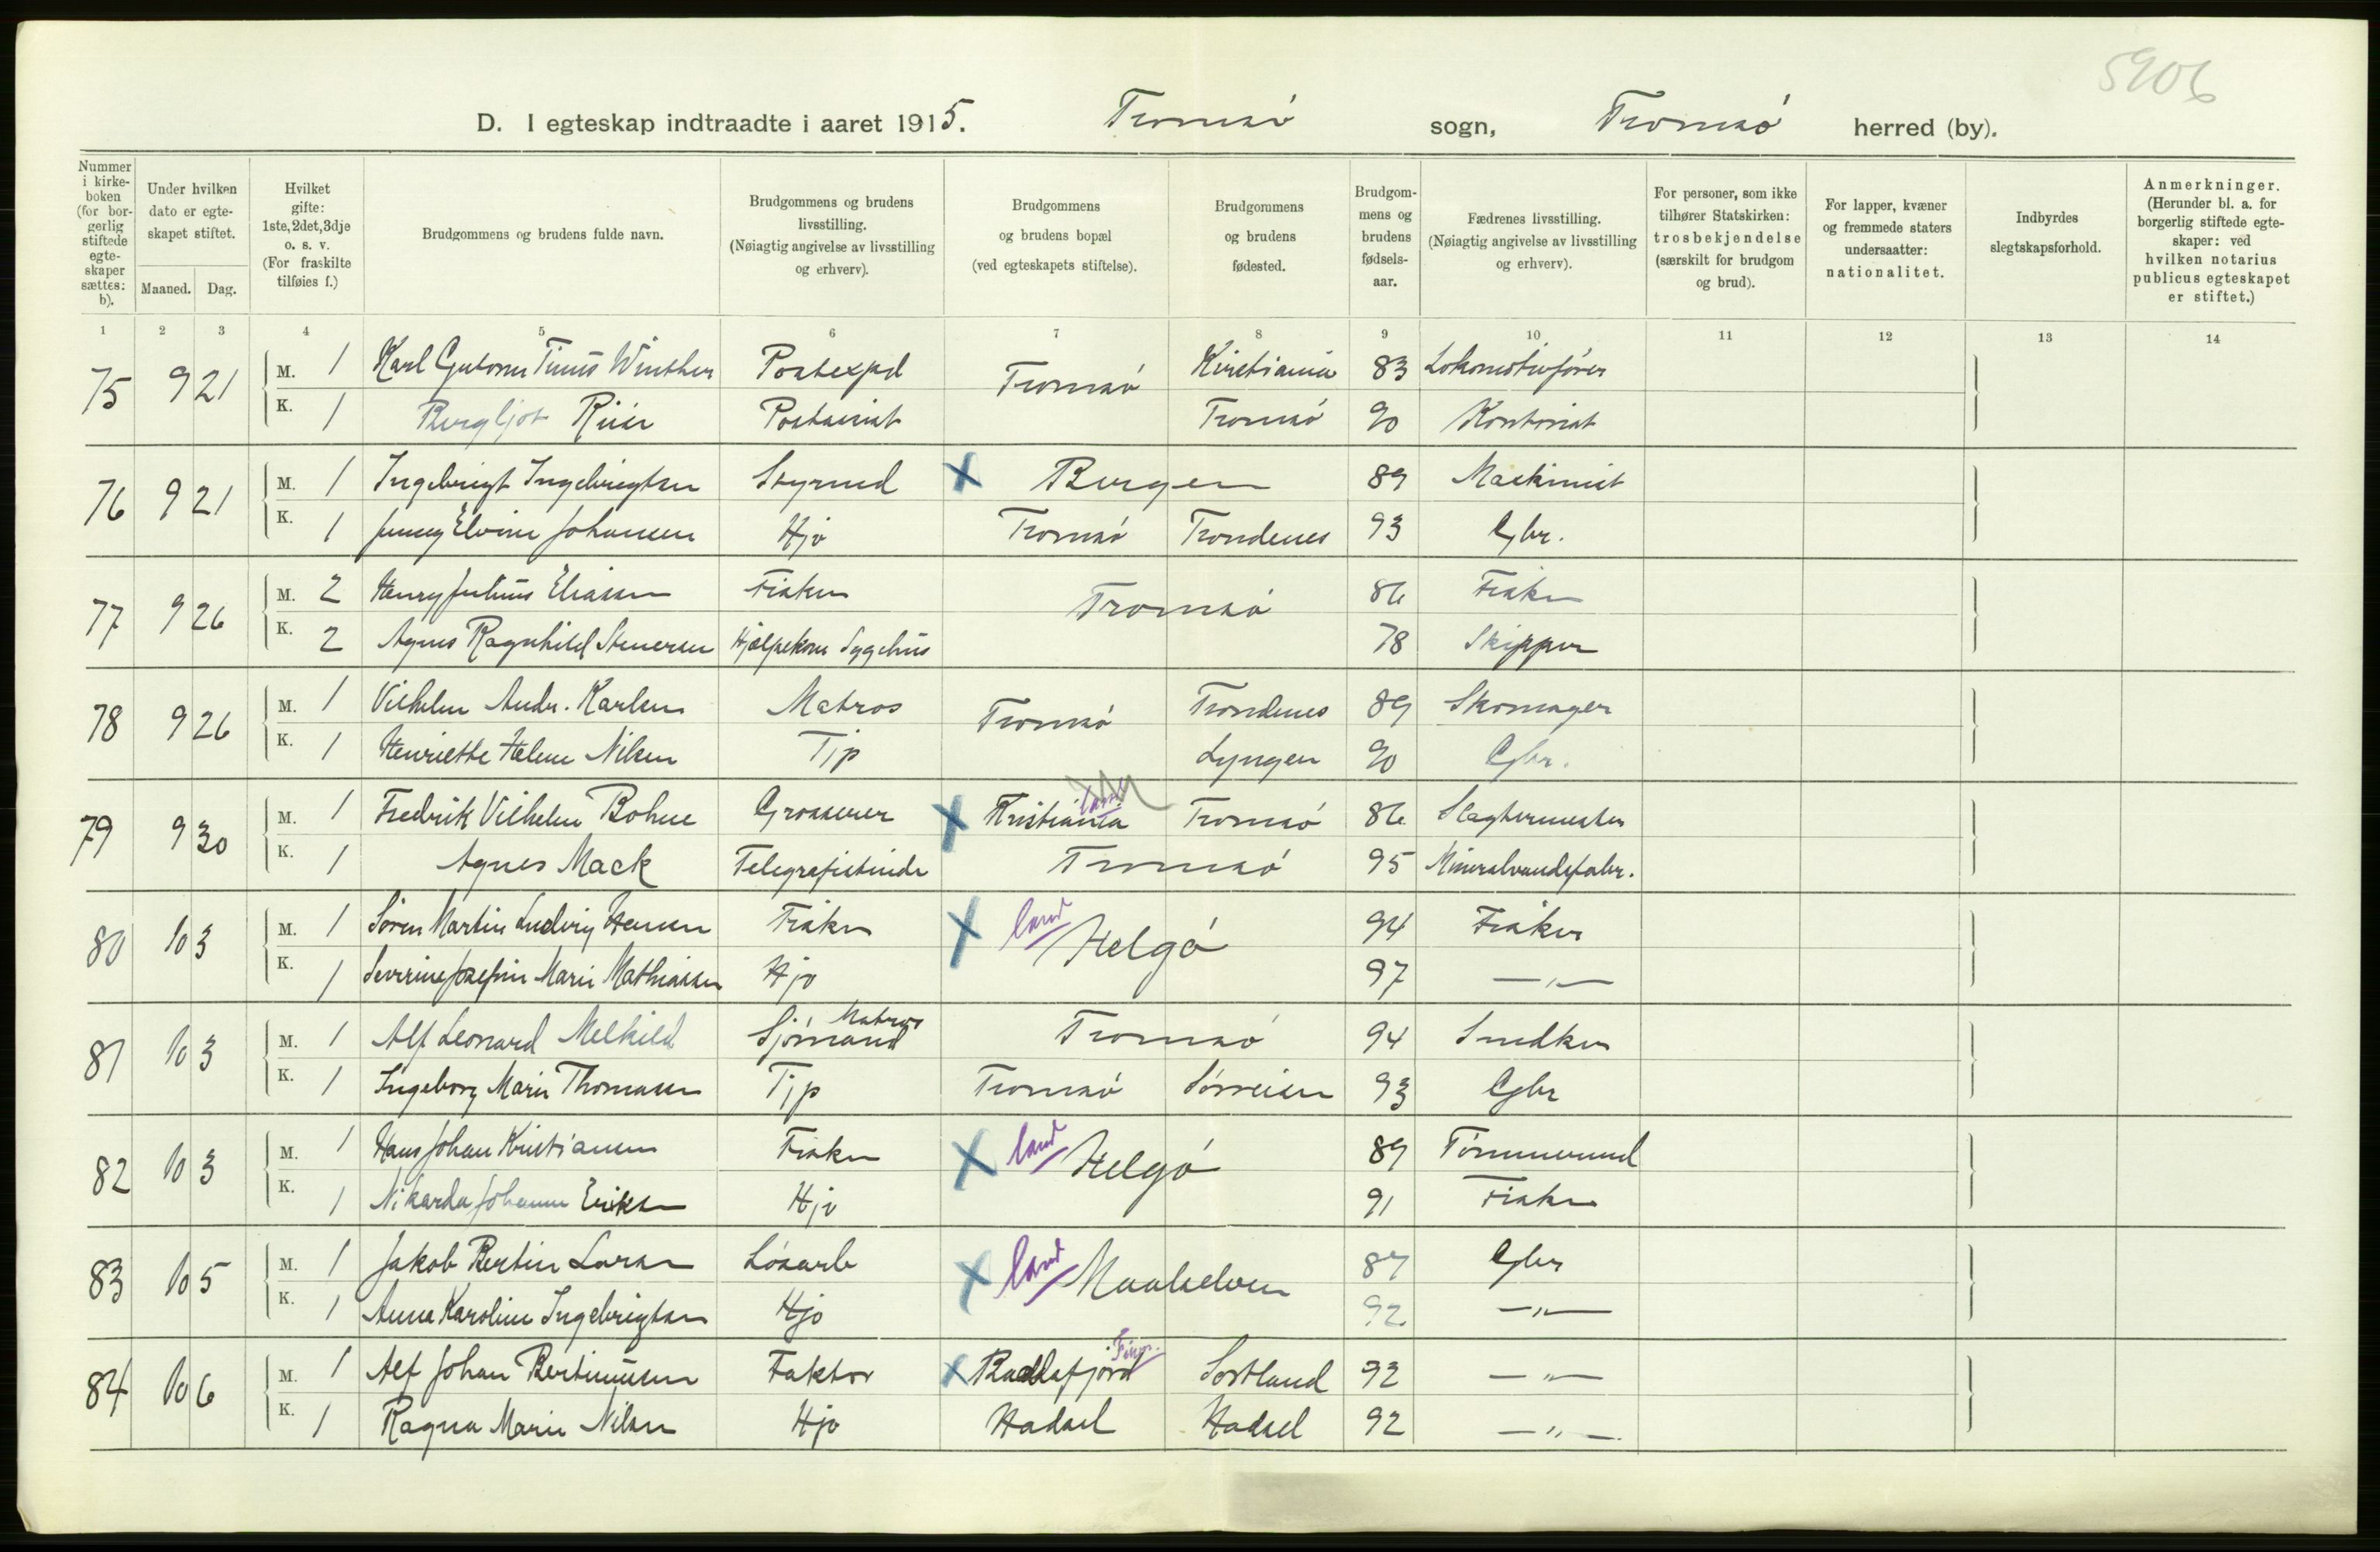 5906
D. I egteskap indtraadte i aaret 1915. Tromsø sogn, Tromsø herred (by).
Nummer i kirke-boken (for bor-gerlig stiftede egte-skaper sættes: b).
Under hvilken dato er egte-skapet stiftet.
Maaned. Dag.
Hvilket gifte: 1ste, 2det, 3dje o. s. v. (For fraskilte tilføies f.)
Brudgommens og brudens fulde navn.
Brudgommens og brudens livsstilling. (Nøiagtig angivelse av livsstilling og erhverv).
Brudgommens og brudens bopæl (ved egteskapets stiftelse).
Brudgommens og brudens fødested.
Brudgom-mens og brudens fødsels-aar.
Fædrenes livsstilling. (Nøiagtig angivelse av livsstilling og erhverv).
For personer, som ikke tilhører Statskirken: trosbekjendelse (særskilt for brudgom og brud).
For lapper, kvæner og fremmede staters undersaatter: nationalitet.
Indbyrdes slegtskapsforhold.
Anmerkninger. (Herunder bl. a. for borgerlig stiftede egte-skaper: ved hvilken notarius publicus egteskapet er stiftet.)
1 2 3 4 5 6 7 8 9 10 11 12 13 14
75 9 21 M. 1 Karl Gutorm Winther Postexpd Tromsø Kristiania 83 Lokomotivfører
K. 1 Bergljot Riise Tromsø 90 Kontorist
76 9 21 M. 1 Ingebrigt Ingebrigtsen Styrmd X Bergen 89 Maskinist
K. 1 Jenny Elvine Johansen Hjo Tromsø Trondenes 93 Gbr.
77 9 26 M. 2 Henry Julius Eliassen Fisker Tromsø 86 Fisker
K. 2 Agnes Ragnhild Stenersen Hjælpekone Sygehus 78 Skipper
78 9 26 M. 1 Vilhelm Andr. Karlsen Matros Tromsø Trondenes 89 Skomager
K. 1 Henriette Helene Nilsen Tjp Lyngen 90 Gbr.
79 9 30 M. 1 Fredrik Vilhelm Bohne Grosserer X Kristiania Tromsø 86 Slagtermester
K. 1 Agnes Mack Telegrafistinde Tromsø 95 Mineralvandsfabr.
80 10 3 M. 1 Sören Martin Ludvig Hansen Fisker X land Helgø 94 Fisker
K. 1 Severine Josefine Marie Mathiassen Hjo 97 —"—
81 10 3 M. 1 Alf Leonard Melkild Sjømand Matros Tromsø 94 Snedker
K. 1 Ingeborg Marie Thomasen Tjp Tromsø Sørreisen 93 Gbr
82 10 3 M. 1 Hans Johan Kristiansen Fisker X land Helgø 89 Tømmermd
K. 1 Nikarda Johanne Eriksen Hjo 91 Fisker
83 10 5 M. 1 Jakob Bertin Larsen Løsarb X land Maalselven 87 Gbr
K. 1 Anna Karoline Ingebrigtsen Hjo 92 —"—
84 10 6 M. 1 Alf Johan Bertinussen Faktor X Finm. Sortland 92 —"—
K. 1 Ragna Marie Nilsen Hjo Hadsel Hadsel 92 —"—